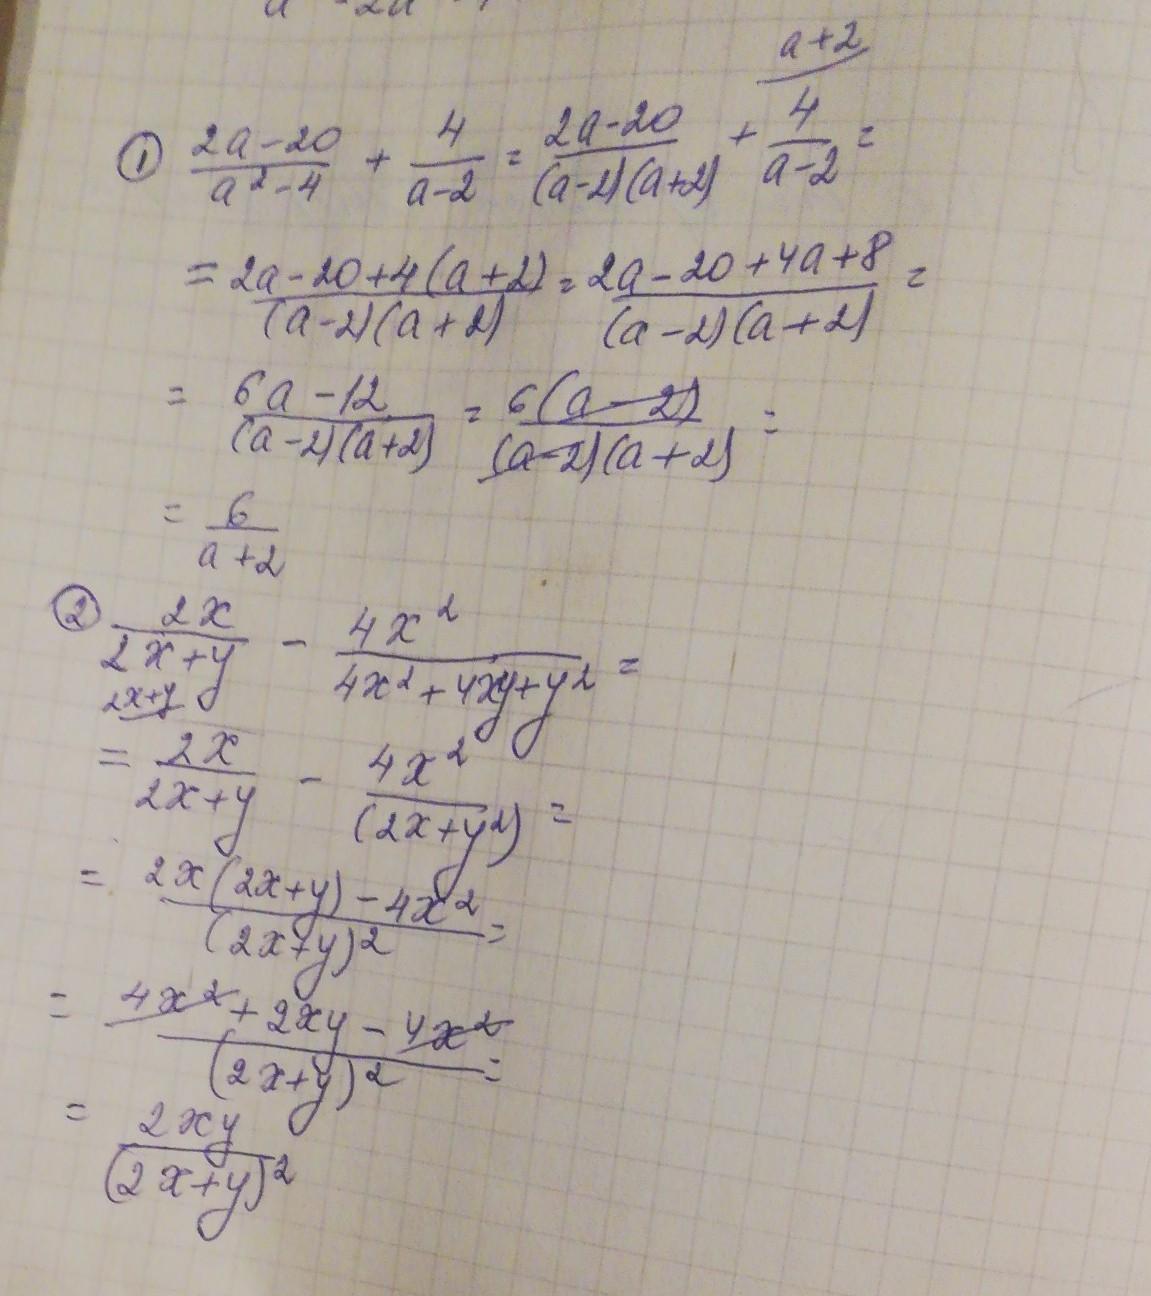 a+2
① (2a-20)/(a²-4) + 4/(a-2) = (2a-20)/((a-2)(a+2)) + 4/(a-2) =
= (2a-20+4(a+2))/((a-2)(a+2)) = (2a-20+4a+8)/((a-2)(a+2)) =
= (6a-12)/((a-2)(a+2)) = 6(a-2)/((a-2)(a+2)) =
= 6/(a+2)
② 2x/(2x+y) - 4x²/(4x²+4xy+y²) =
2x+y
= 2x/(2x+y) - 4x²/(2x+y²) =
= (2x(2x+y)-4x²)/(2x+y)² =
= (4x²+2xy-4x²)/(2x+y)² =
= 2xy/(2x+y)²